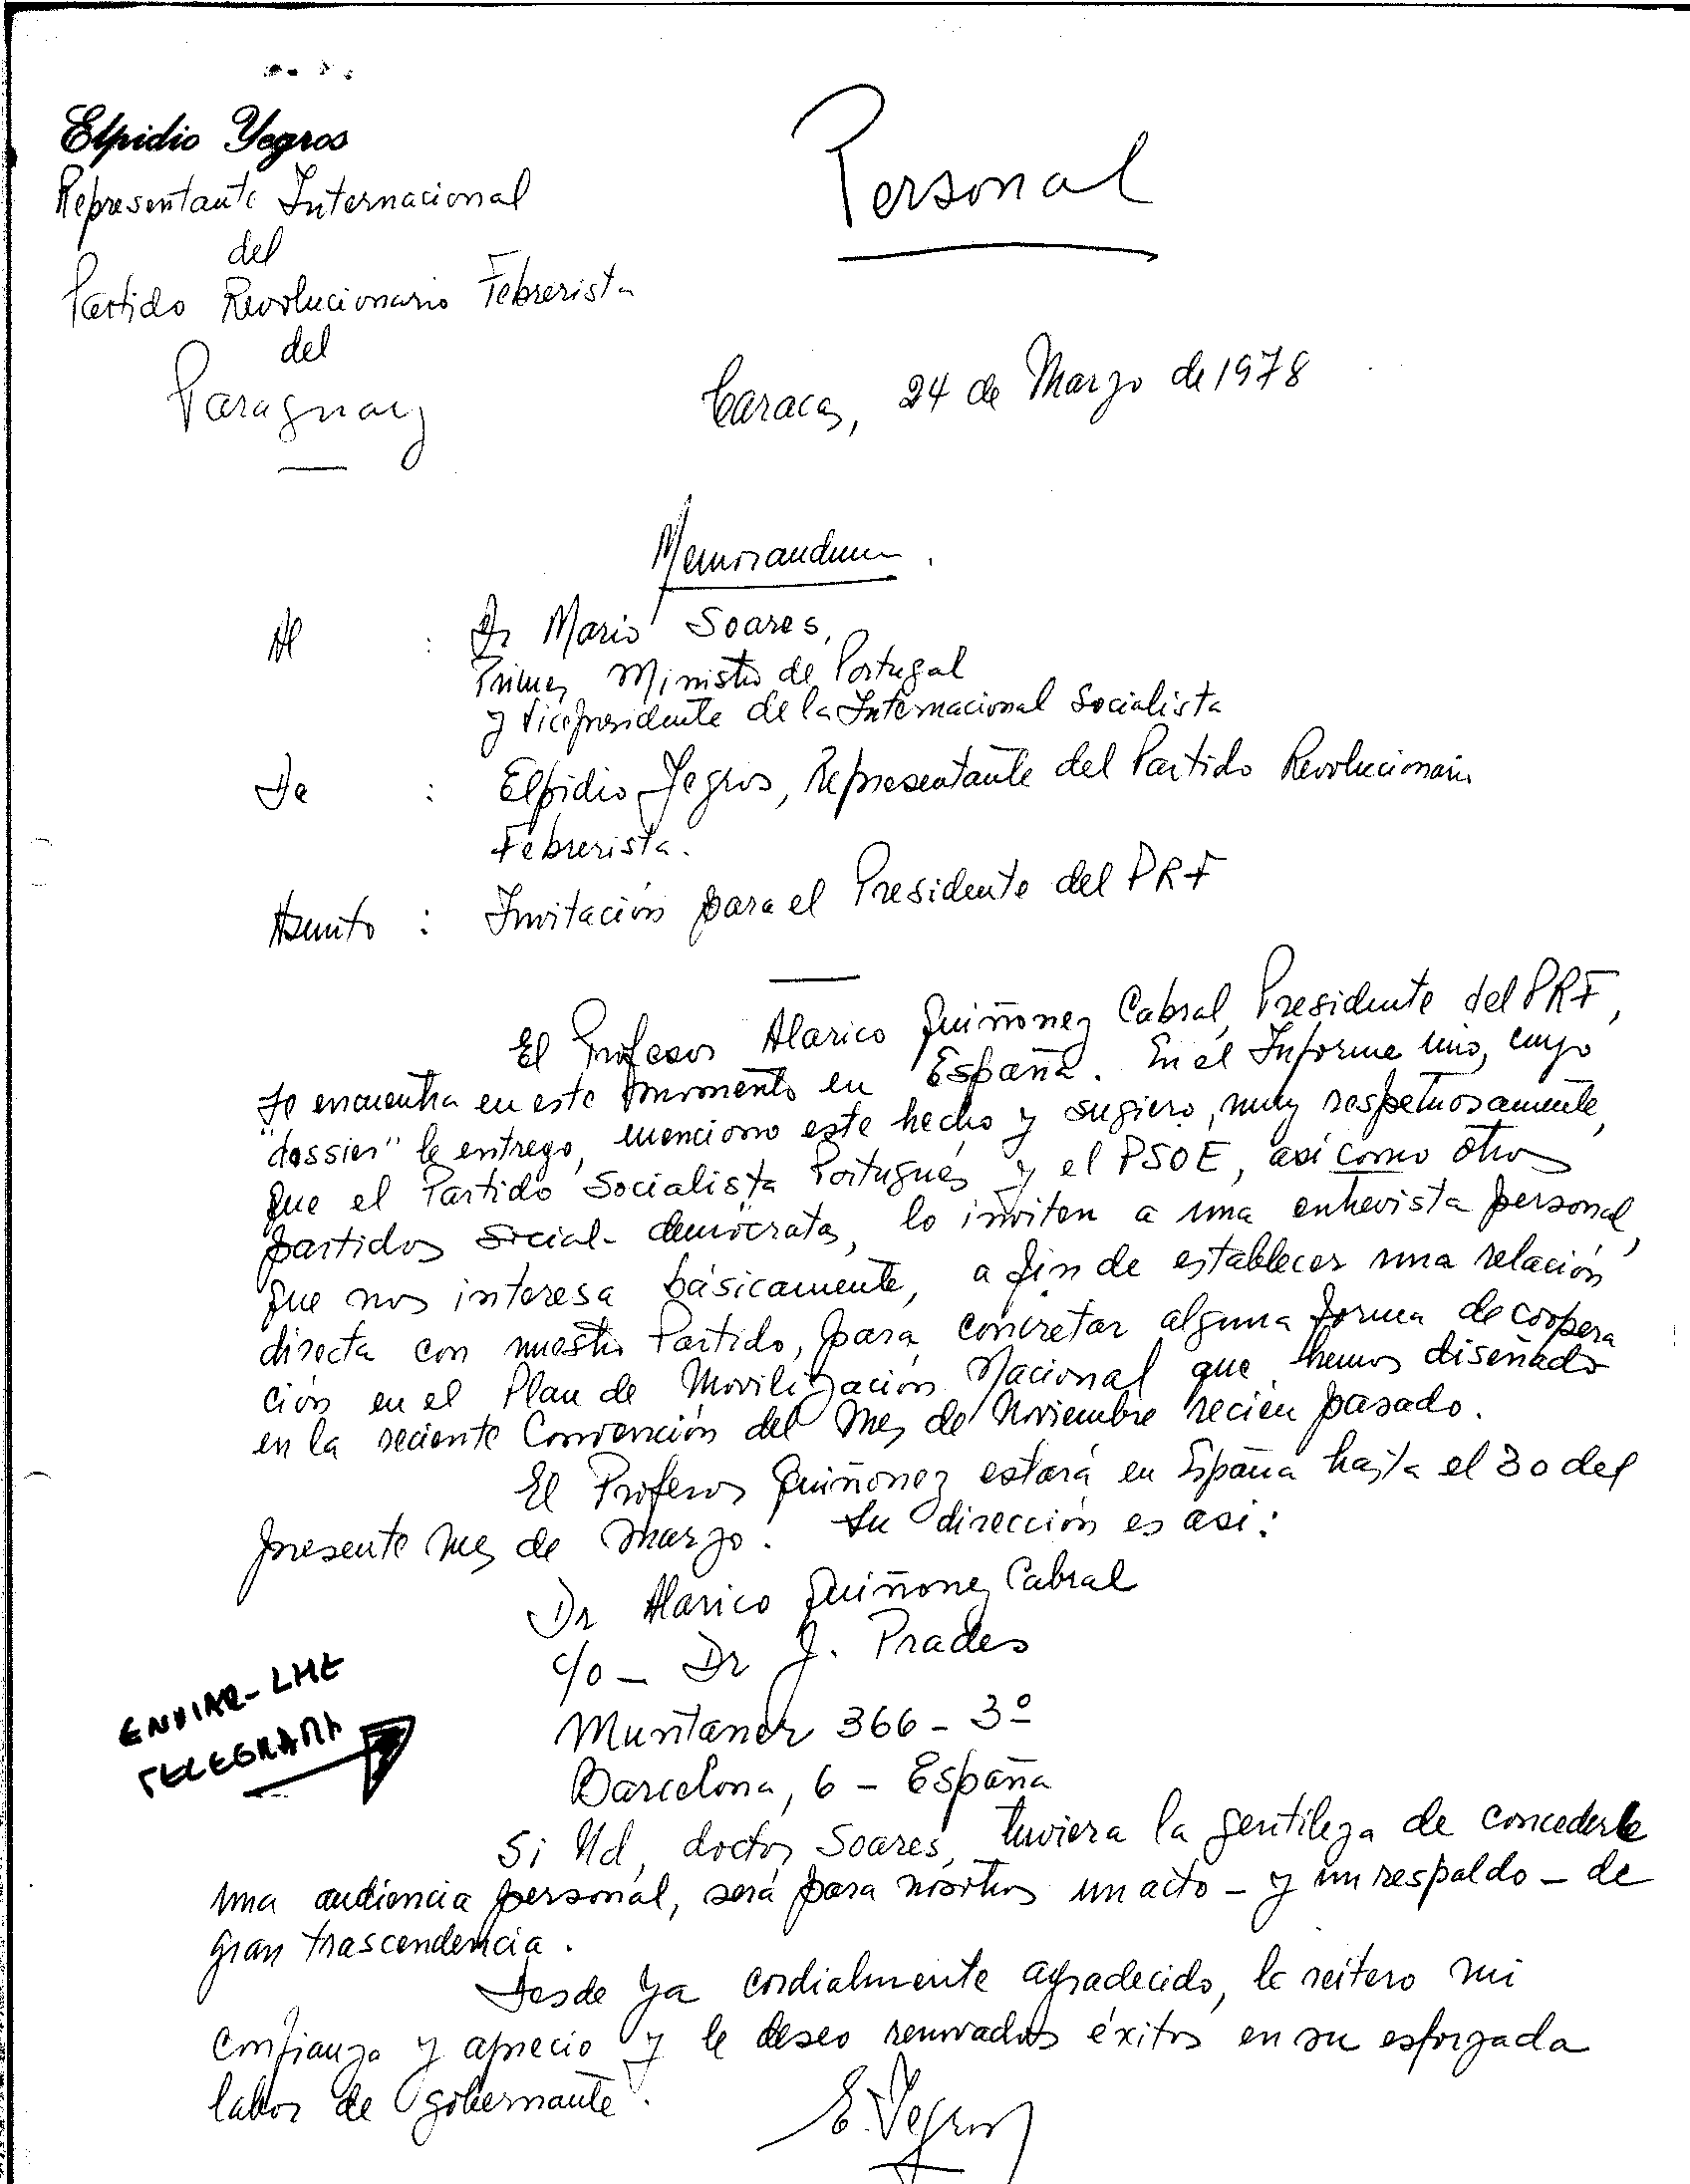 Elpidio Yegros
Representante Internacional
del
Partido Revolucionario Febrerista
del
Paraguay
Personal
Caracas, 24 de Marzo de 1978
Memorandum.
Al : Dr Mario Soares,
Primer Ministro de Portugal
y Vicepresidente de la Internacional Socialista
De : Elpidio Yegros, Representante del Partido Revolucionario
Febrerista.
Asunto : Invitación para el Presidente del PRF
El Profesor Alarico Quiñonez Cabral, Presidente del PRF,
se encuentra en este momento en España. En el Informe mio, cuyo
"dossier" le entrego, menciono este hecho y sugiero, muy respetuosamente,
que el Partido Socialista Portugués y el PSOE, así como otros
partidos social-demócratas, lo inviten a una entrevista personal,
que nos interesa básicamente, a fin de establecer una relación
directa con nuestro Partido, para concretar alguna forma de coopera
ción en el Plan de Movilización Nacional que hemos diseñado
en la reciente Convención del mes de Noviembre recien pasado.
El Profesor Quiñonez estará en España hasta el 30 del
presente mes de Marzo. Su dirección es asi:
Dr Alarico Quiñonez Cabral
c/o - Dr J. Prades
Muntaner 366 - 3º
Barcelona, 6 - España
ENVIAR-LHE
TELEGRAMA
Si Ud, doctor Soares, tuviera la gentileza de concederle
una audiencia personal, será para nosotros un acto - y un respaldo - de
gran trascendencia.
Desde ya cordialmente agradecido, le reitero mi
confianza y aprecio y le deseo renovados éxitos en su esforzada
labor de gobernante.
E. Yegros